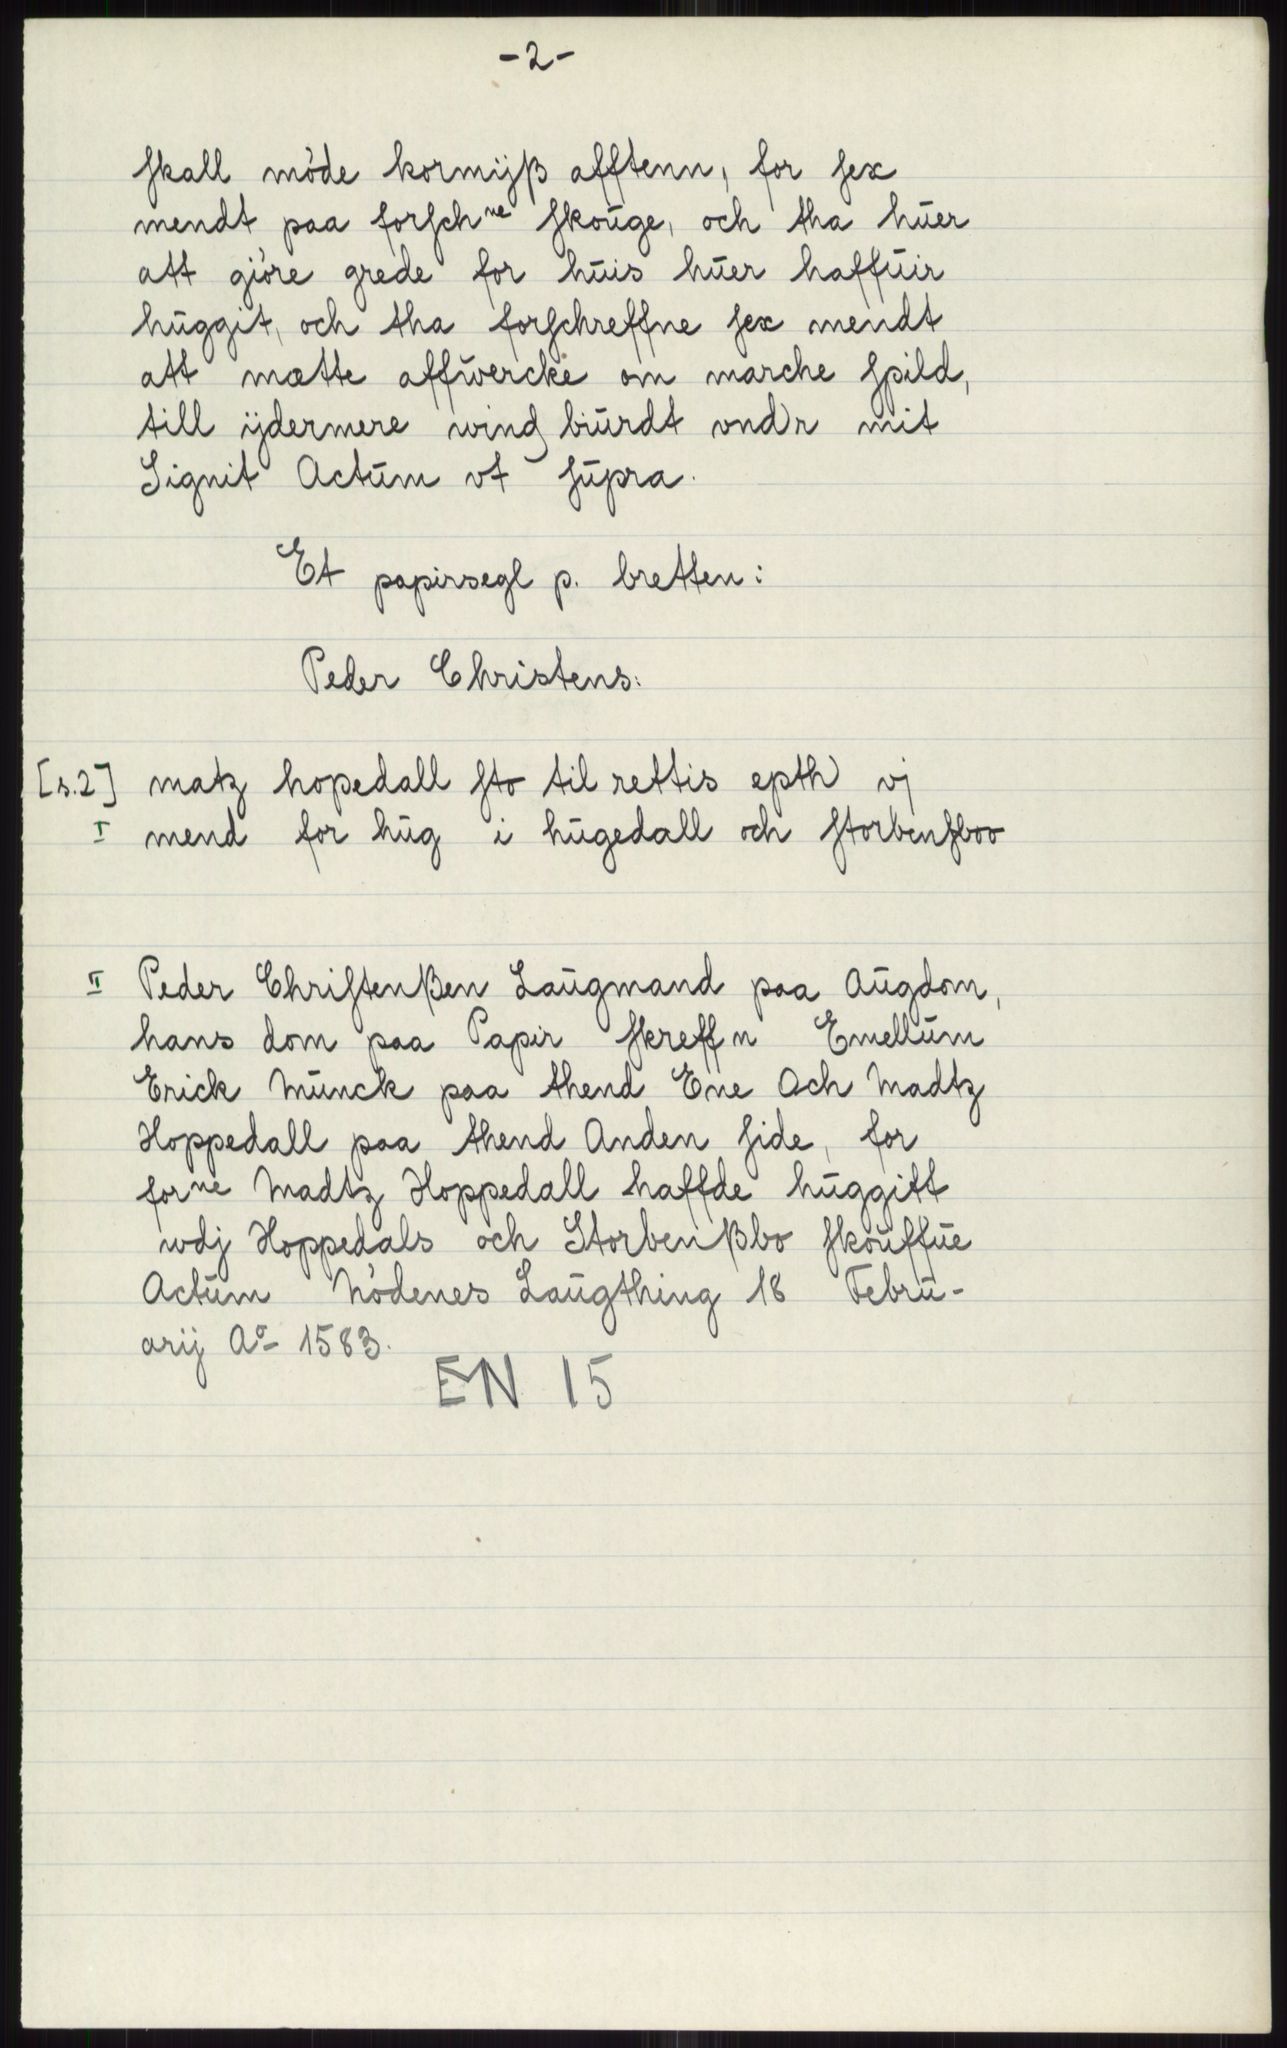 -2-
skall möde kormijß afftenn, for sex
mendt paa forschne skoüge, och tha hüer
att giöre grede for hüis hüer haffüir
hüggit, och tha forschreffne sex mendt
att mette affwercke om marche spild,
till ijdermere windβiürdt vndr mit
Signit Actüm vt süpra.
Et papirsegl p. bretten:
Peder Christens:
[s.2] matz hopedall sto til rettis epth vj
I mend for hüg i hügedall och storbensboo
II Peder Christenßen Laügmand paa Aügdom,
hans dom paa Papir skreffn Emellüm
Erick Münck paa thend Ene Och Madtz
Hoppedall paa thend Anden side, for
forne Madtz Hoppedall haffde hüggitt
wdj Hoppedals och Storbenßbo skoüffüe
Actüm Nödenes Laügthing 18 Febrü-
arij Ao 1583.
EN 15